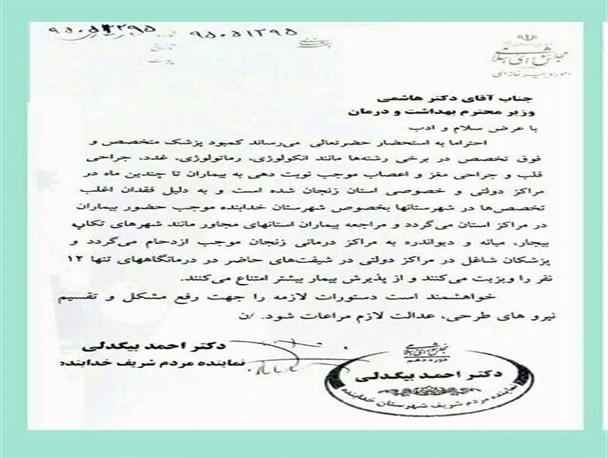 ۹۵۰۵۱۲۹۵
مجلس شورای اسلامی
جناب آقای دکتر هاشمی
وزیر محترم بهداشت و درمان
با عرض سلام و ادب
احتراما به استحضار حضرتعالی می‌رساند کمبود پزشک متخصص و
فوق تخصص در برخی رشته‌ها مانند انکولوژی، رماتولوژی، غدد، جراحی
قلب و جراحی مغز و اعصاب موجب نوبت دهی به بیماران تا چندین ماه در
مراکز دولتی و خصوصی استان زنجان شده است و به دلیل فقدان اغلب
تخصص‌ها در شهرستانها بخصوص شهرستان خدابنده موجب حضور بیماران
در مراکز استان می‌گردد و مراجعه بیماران استانهای مجاور مانند شهرهای تکاب
بیجار، میانه و دیواندره به مراکز درمانی زنجان موجب ازدحام می‌گردد و
پزشکان شاغل در مراکز دولتی در شیفت‌های حاضر در درمانگاههای تنها ۱۲
نفر را ویزیت می‌کنند و از پذیرش بیمار بیشتر امتناع می‌کنند.
خواهشمند است دستورات لازمه را جهت رفع مشکل و تقسیم
نیرو های طرحی، عدالت لازم مراعات شود. /ن
دکتر احمد بیگدلی
نماینده مردم شریف خدابنده
مجلس شورای اسلامی
دوره دهم
دکتر احمد بیگدلی
نماینده مردم شریف شهرستان خدابنده